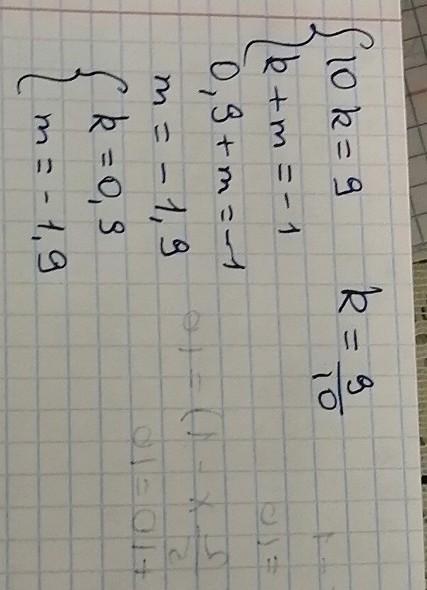 { 10 k = 9    k = 9/10
{ k + m = -1
0,9 + m = -1
m = -1,9
{ k = 0,9
{ m = -1,9